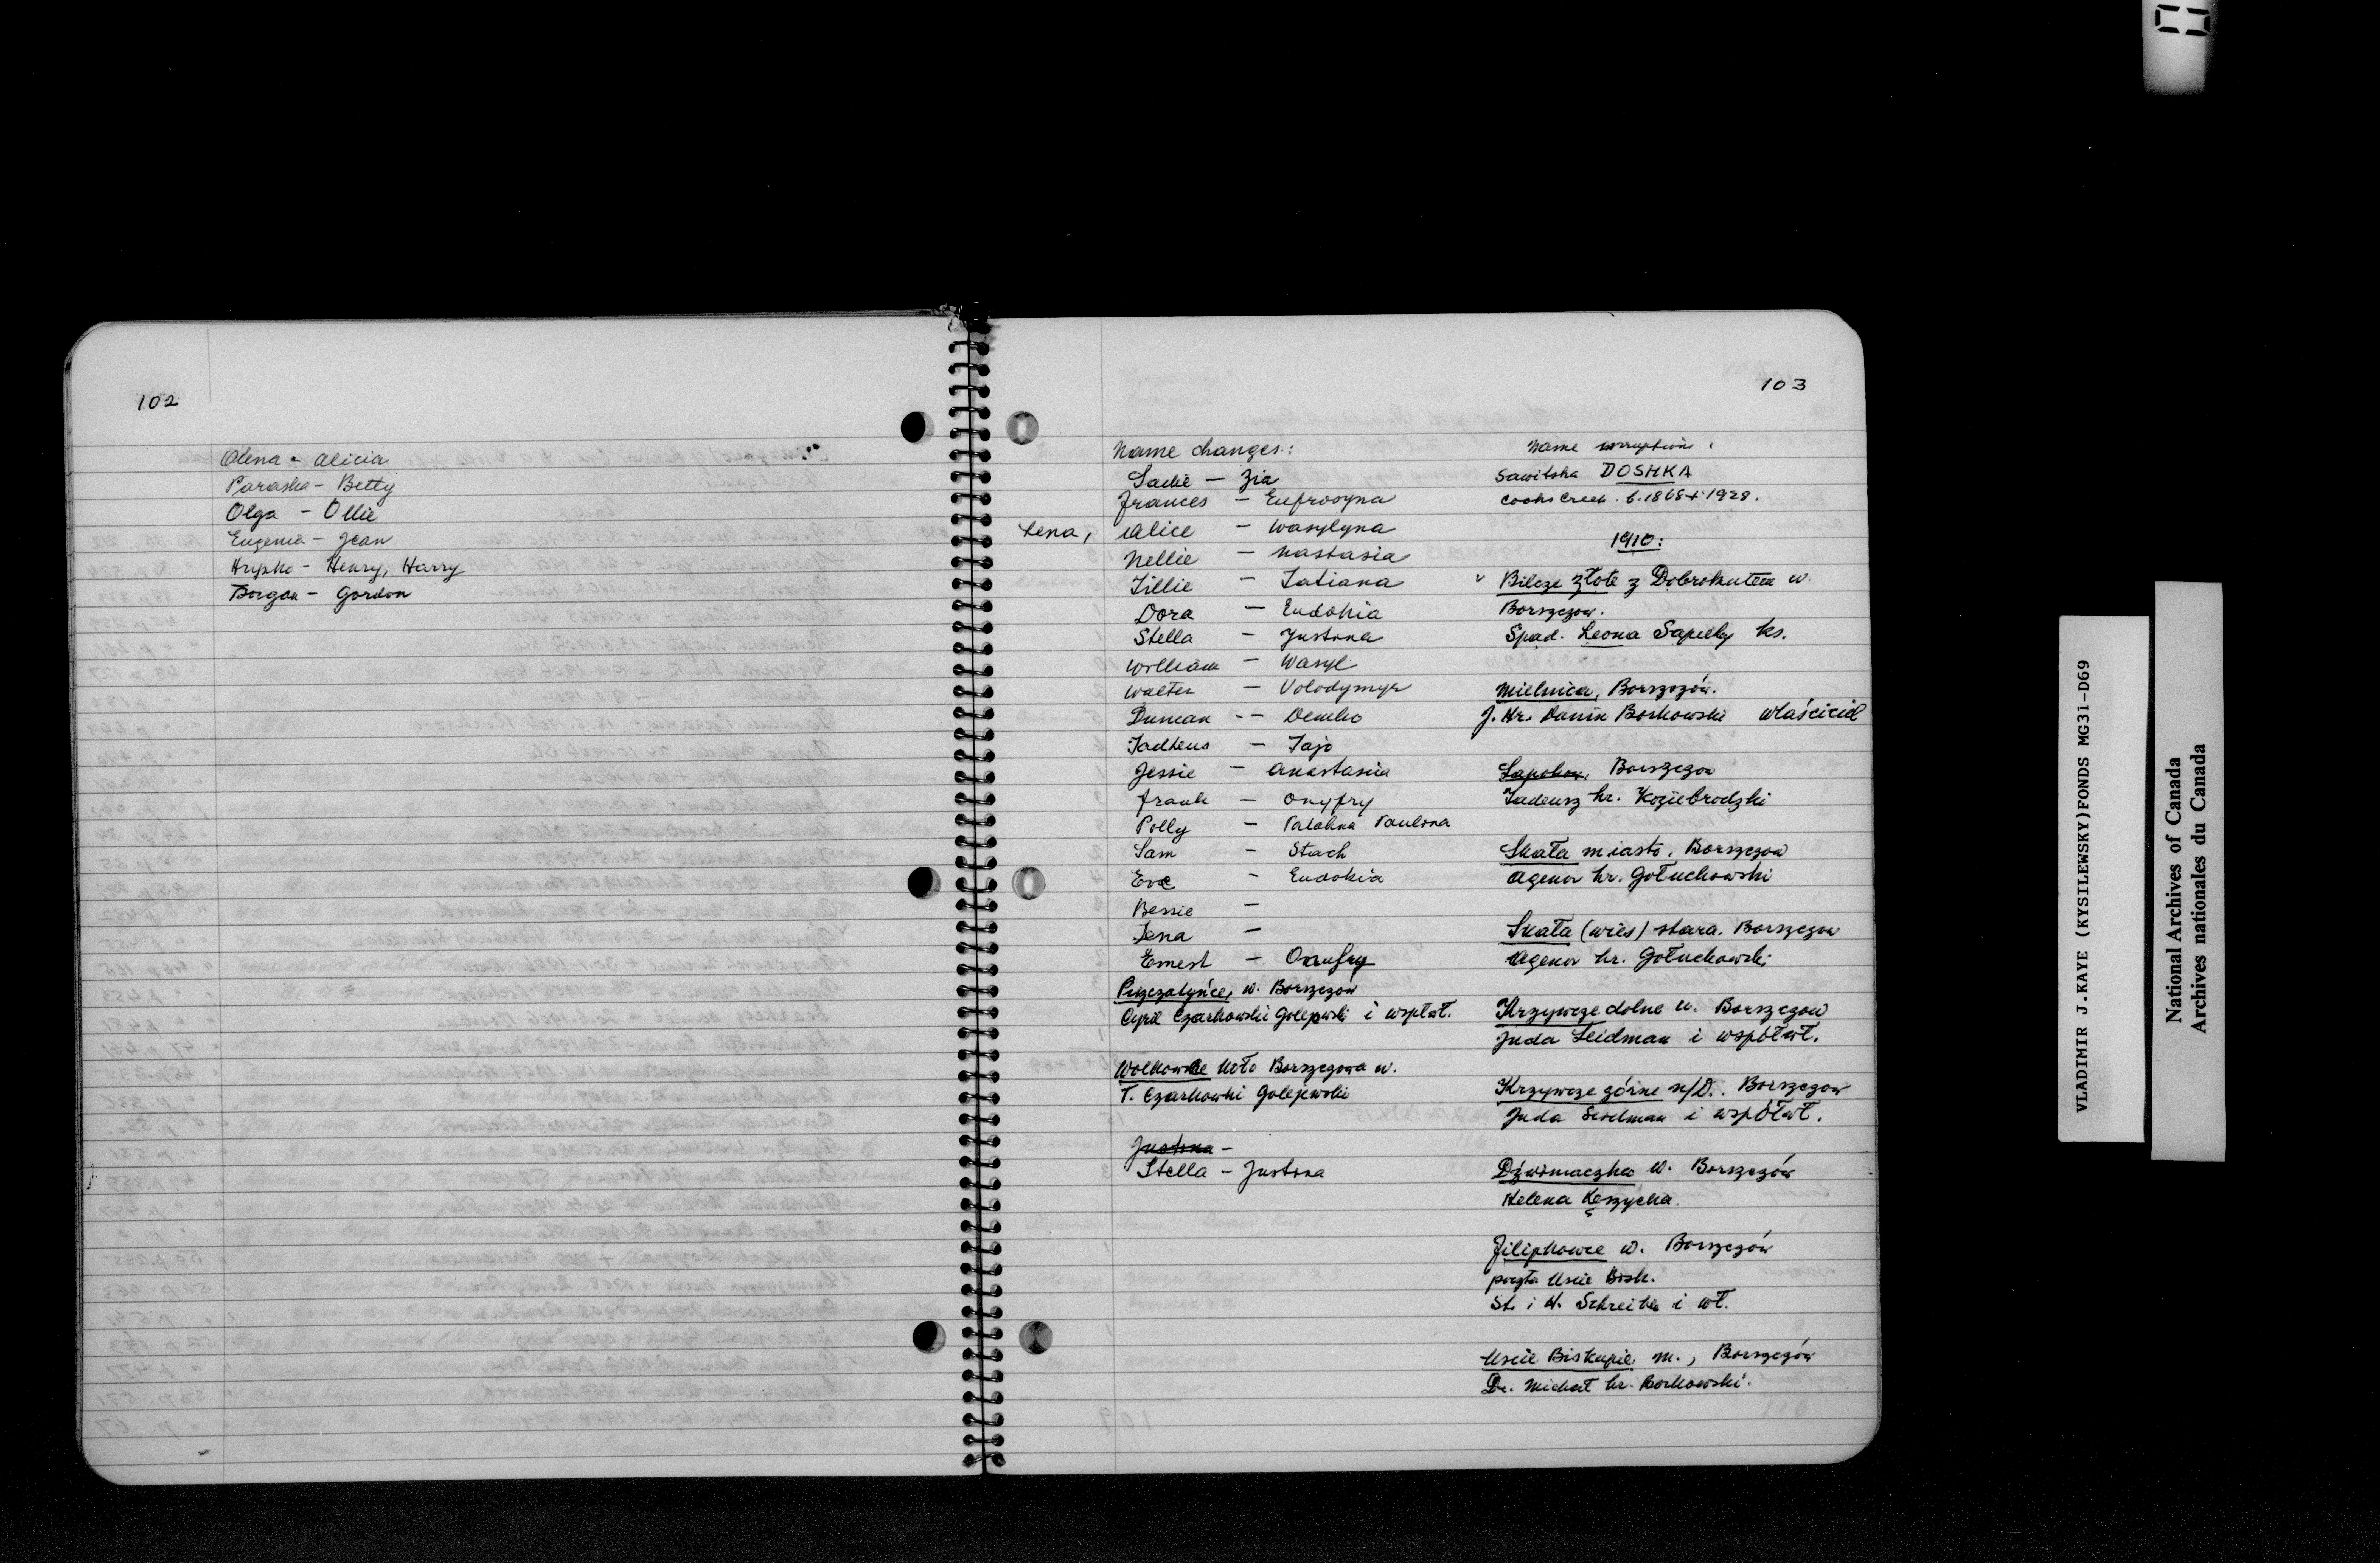 102
Olena - Alicia
Paraska - Betty
Olga - Ollie
Eugenia - Jean
Hrypko - Henry, Harry
Borgon - Gordon
103
Name changes:
Sadie - Zia
Frances - Eufrosyna
Lena, Alice - Wasylyna
Nellie - Nastasia
Tillie - Tatiana
Dora - Eudokia
Stella - Justina
William - Wasyl
Walter - Volodymyr
Duncan -- Demko
Tadteus - Tajo
Jessie - Anastasia
Frank - Onyfry
Polly - Palahna Paulina
Sam - Stach
Eve - Eudokia
Bessie -
Lena -
Ernest - Onufry
Piszczatyńce, w. Borszczów
Cyril Czarkowski Golejewski i wspłwł.
Wolkowce koło Borszczowa w.
T. Czarkowski Golejewski
Justina -
Stella - Justina
Name corruptions:
Sawitska DOSHKA
Cooks Creek. b.1868 + 1928.
1910:
v Bilcze złote z Dobrokutem w.
Borszczow.
Spad. Leona Sapiehy ks.
Mielnica, Borszczów.
J. Hr. Dunin Borkowski właściciel
Sapohow, Borszczow
Tadeusz hr. Koziebrodzki
Skała miasto, Borszczow
Agenor hr. Gołuchowski
Skała (wieś) stara. Borszczow
Agenor hr. Gołuchowski
Krzywcze dolne w. Borszczow
Juda Seidman i współwł.
Krzywcze górne n/D. Borszczow
Juda Seidman i współwł.
Dźwiniaczka w. Borszczów
Helena Kęszycka.
Filipkowce w. Borszczów
poczta Uscie Bisk.
St. i H. Schreiber i wł.
Uscie Biskupie m., Borszczów
Dr. Michał hr. Borkowski.
VLADIMIR J.KAYE (KYSILEWSKY)FONDS MG31-D69
National Archives of Canada
Archives nationales du Canada